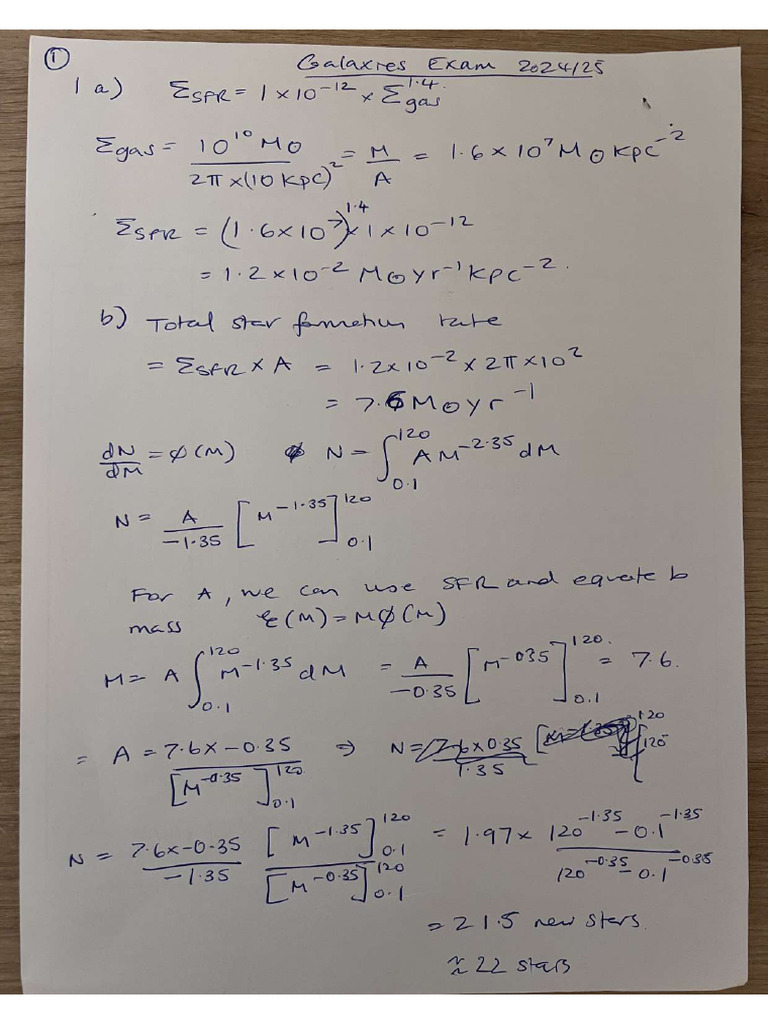 ① Galaxies Exam 2024/25
1 a) Σ_SFR = 1×10^-12 × Σ_gas^1.4
Σgas = 10^10 M⊙ / 2π×(10 kpc)^2 = M/A = 1.6×10^7 M⊙ kpc^-2
Σ_SFR = (1.6×10^7)^1.4 × 1×10^-12
= 1.2×10^-2 M⊙ yr^-1 kpc^-2.
b) Total star formation rate
= Σ_SFR × A = 1.2×10^-2 × 2π×10^2
= 7.6 M⊙ yr^-1
dN/dM = ϕ(M) N = ∫_0.1^120 A M^-2.35 dM
N = A/-1.35 [M^-1.35]_0.1^120
For A, we can use SFR and equate to
mass ξ(M) = Mϕ(M)
M = A ∫_0.1^120 M^-1.35 dM = A/-0.35 [M^-035]_0.1^120 = 7.6.
= A = 7.6×-0.35 / [M^-0.35]_0.1^120 ⇒ N =
N = 7.6×-0.35/-1.35 [M^-1.35]_0.1^120 / [M^-0.35]_0.1^120 = 1.97 × 120^-1.35 - 0.1^-1.35 / 120^-0.35 - 0.1^-0.35
= 21.5 new stars.
≈ 22 stars